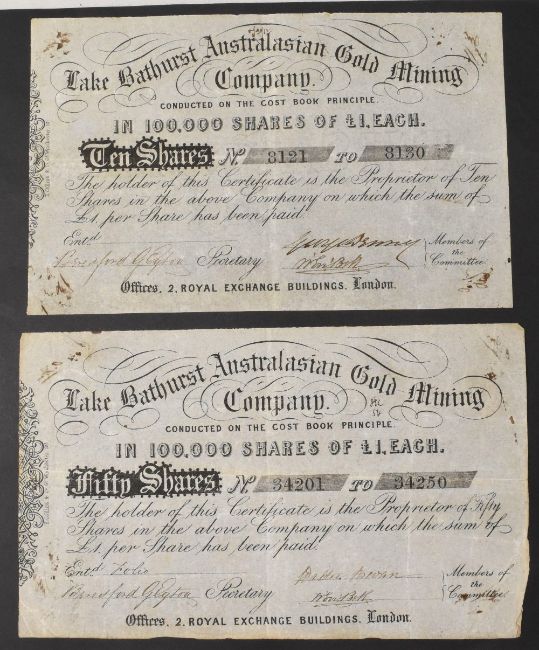 Lake Bathurst Australasian Gold Mining
Company.
CONDUCTED ON THE COST BOOK PRINCIPLE.
IN 100,000 SHARES OF £1, EACH.
Ten Shares No. 3121 TO 3130
The holder of this Certificate is the Proprietor of Ten
Shares in the above Company on which the sum of
£1, per Share has been paid.
Entd.
Secretary
Members of
the
Committee
Offices, 2, ROYAL EXCHANGE BUILDINGS, London.
Lake Bathurst Australasian Gold Mining
Company.
CONDUCTED ON THE COST BOOK PRINCIPLE.
IN 100,000 SHARES OF £1, EACH.
Fifty Shares No. 34201 TO 34250
The holder of this Certificate is the Proprietor of Fifty
Shares in the above Company on which the sum of
£1, per Share has been paid.
Entd. Folio
Secretary
Members of
the
Committee
Offices, 2, ROYAL EXCHANGE BUILDINGS, London.